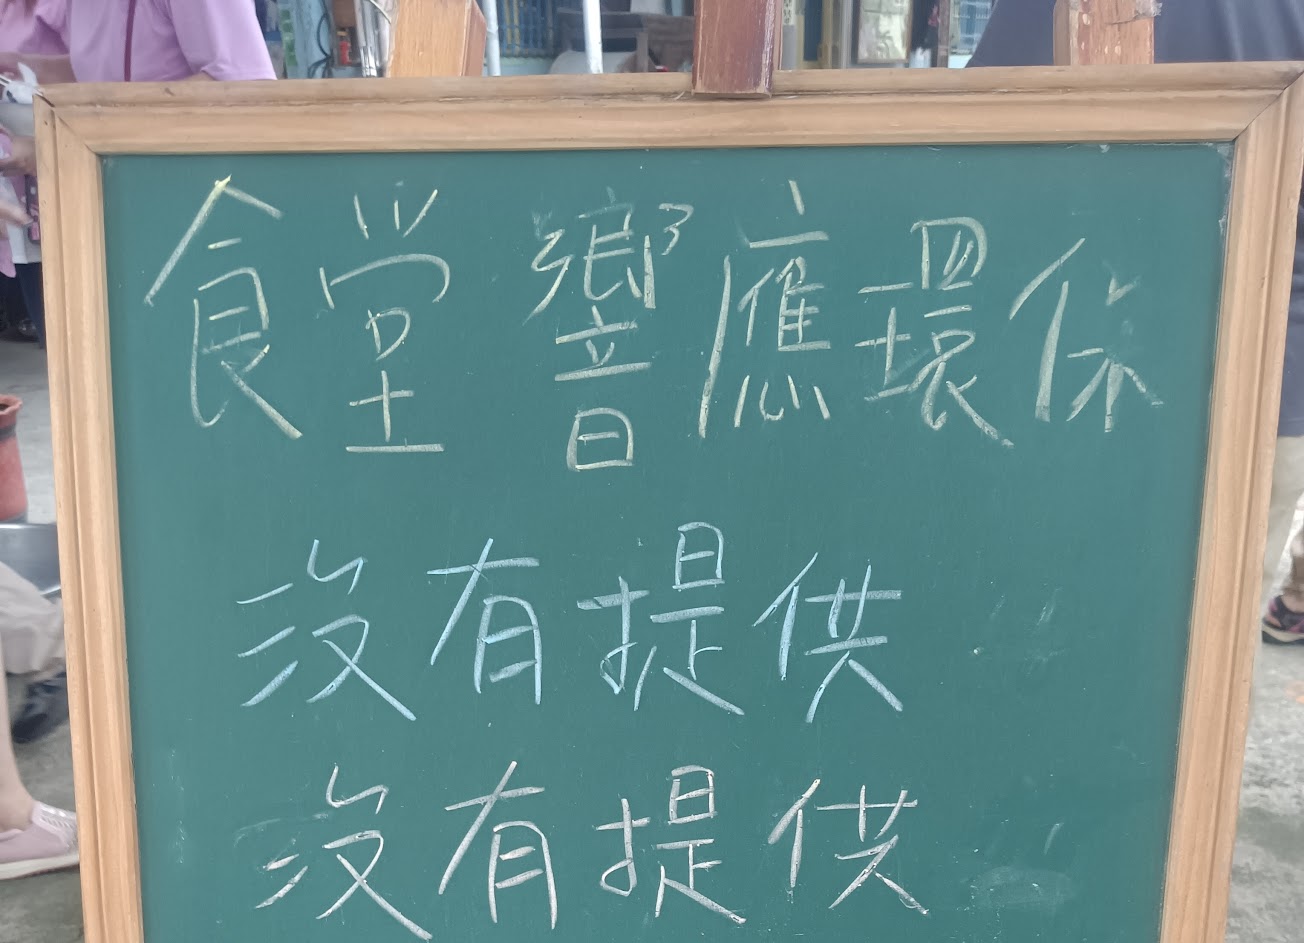 食堂 響應環保
沒有提供
沒有提供